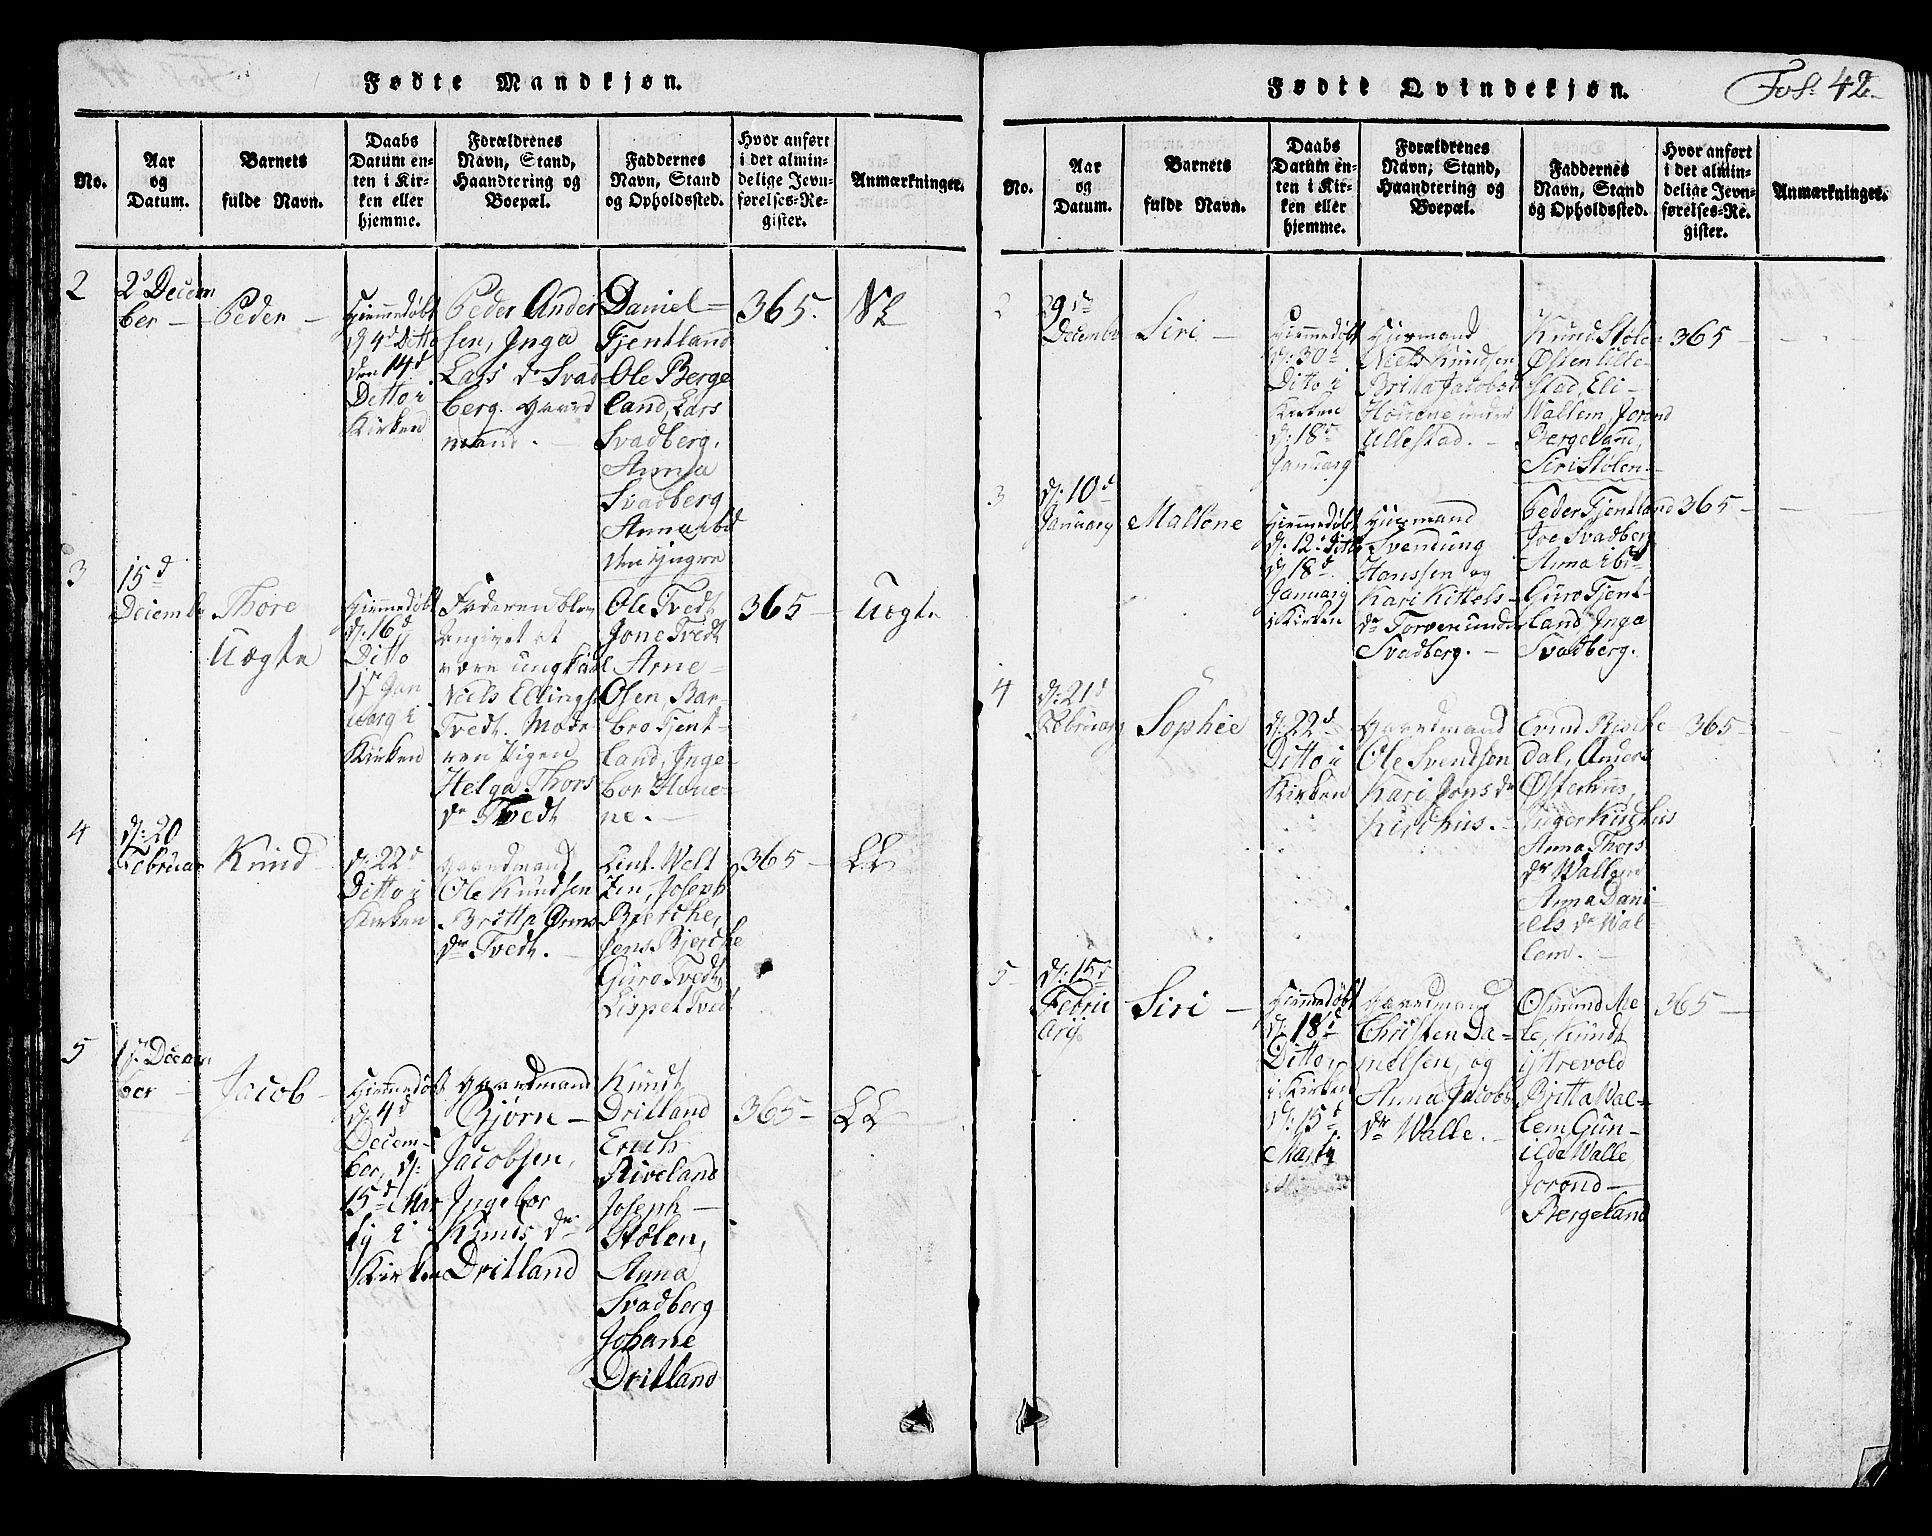 Fødte Mandkjøn.
No.
Aar
og
Datum.
Barnets
fulde Navn.
Daabs
Datum en-
ten i Kir-
ken eller
hjemme.
Forældrenes
Navn, Stand,
Haandtering og
Boepæl.
Faddernes
Navn, Stand
og Opholdssted.
Hvor anført
i det almin-
delige Jevn-
førelses-Re-
gister.
Anmærkninger.
2
2d Decem
ber —
Peder —
Hiemmedøbt
d 4d Ditto
den 14d
Ditto i
Kirken
Peder Ander
sen, Inga
Lars dr Svad
berg. Gaard
mand. —
Daniel
Tjentland
Ole Berge
land, Lars
Svadberg,
Anna
Svadberg
Anna ibd
365.
3
15d
Decembr
Thore
Uægte
Hiemmedøbt
d: 16d
Ditto
1ste Jan
uarg i
Kirken
Faderen blev
angivet at
være ungkarl
Niels Ellings
Tvedt. Mode
ren Pigen
Helga Thors
dr Tvedt
Ole Tvedt
Jone Tvedt
Arne
Olsen, Bar-
bro Tjent-
land, Inge-
bor Hone-
ne. —
365 —
Uægte
4
d: 20
Februar
Knud
d: 22d
Ditto i
Kirken
Gaardmand
Ole Knudsen
Britta Orms
dr Tvedt. —
Lieut. Welt
zin, Joseph
Bjerche,
Jens Bjerche
Guro Tvedt
Lispet Tvedt
365 —
LL
5
1ste Decem
ber —
Jacob —
Hiemmedøbt
d: 4d
Decem-
ber, d:
15d Mar
tij i
Kirken
Gaardmand
Bjørn —
Jacobsen,
Ingebor
Knuds dr
Dritland
Knudt
Dritland
Erich
Riveland
Joseph —
Stølen,
Anna
Svadberg
Johane
Dritland
365 —
LL
Fødte Qvindekjøn.
Fol: 42
No.
Aar
og
Datum.
Barnets
fulde Navn.
Daabs
Datum en-
ten i Kir-
ken eller
hjemme.
Forældrenes
Navn, Stand,
Haandtering og
Boepæl.
Faddernes
Navn, Stand
og Opholdssted.
Hvor anført
i det almin-
delige Jevn-
førelses-Re-
gister.
Anmærkninger.
2
29de
Decembr
Siri —
Hiemmedøbt
d: 30d
Ditto i
Kirken
d: 18d
Januarg
Huusmand
Niels Knudsen
Britta Jacobsd
Honene under
Ullestad. —
Knud Stølen
Østen Ulle-
stad, Eli —
Wallem, Jorond
Bergeland,
Siri Stølen
365 —
3
d: 10d
Januarg
Mallene
Hiemmedøbt
d: 12d Ditto
d 18d
Januarg
i Kirken
Huusmand
Svendung
Hanssen og
Kari Kittels-
dr Torven under
Svadberg. —
Peder Tjentland
Joe Svadberg
Anna ibd
Guro Tjent-
land, Inga
Svadberg.
365 —
4
d: 21d
Februarg
Sophie
d: 22d
Ditto i
Kirken
Gaardmand
Ole Svendsen
Kari Jons dr
Kirchus. —
Erind Rische
dal, Anders
Østerhus,
Inger Kirchus
Anna Thors
dr Wallem
Anna Dani
els dr Wal-
lem. —
365 —
5
d: 15d
Febru
arg.
Siri —
Hiemmedøbt
d: 18d
Ditto
i Kirken
d: 15d
Martij
Gaardmand
Christen Da-
nielsen, og
Anna Jacobs
dr Walle. —
Osmund Me
le, Knudt
ijstrevold
Britta Wal-
lem Gun-
ilda Walle,
Jorond —
Bergeland
365 —